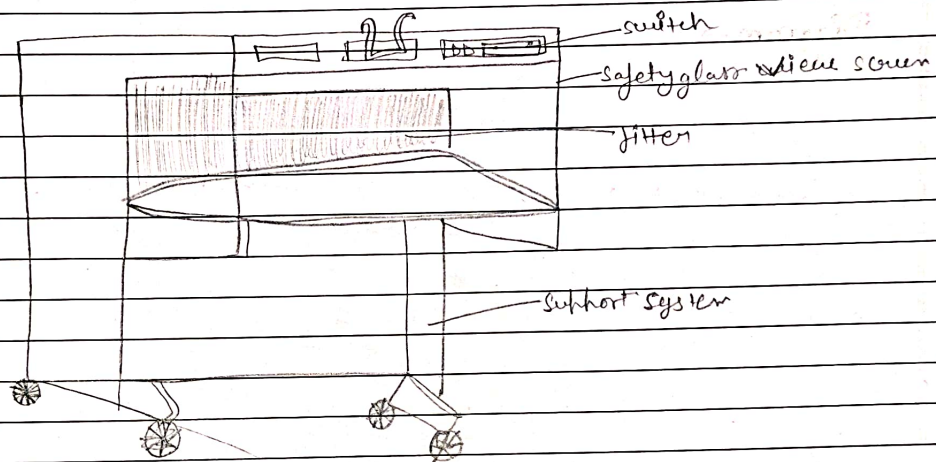 switch
Safety glass view screen
filter
Support system